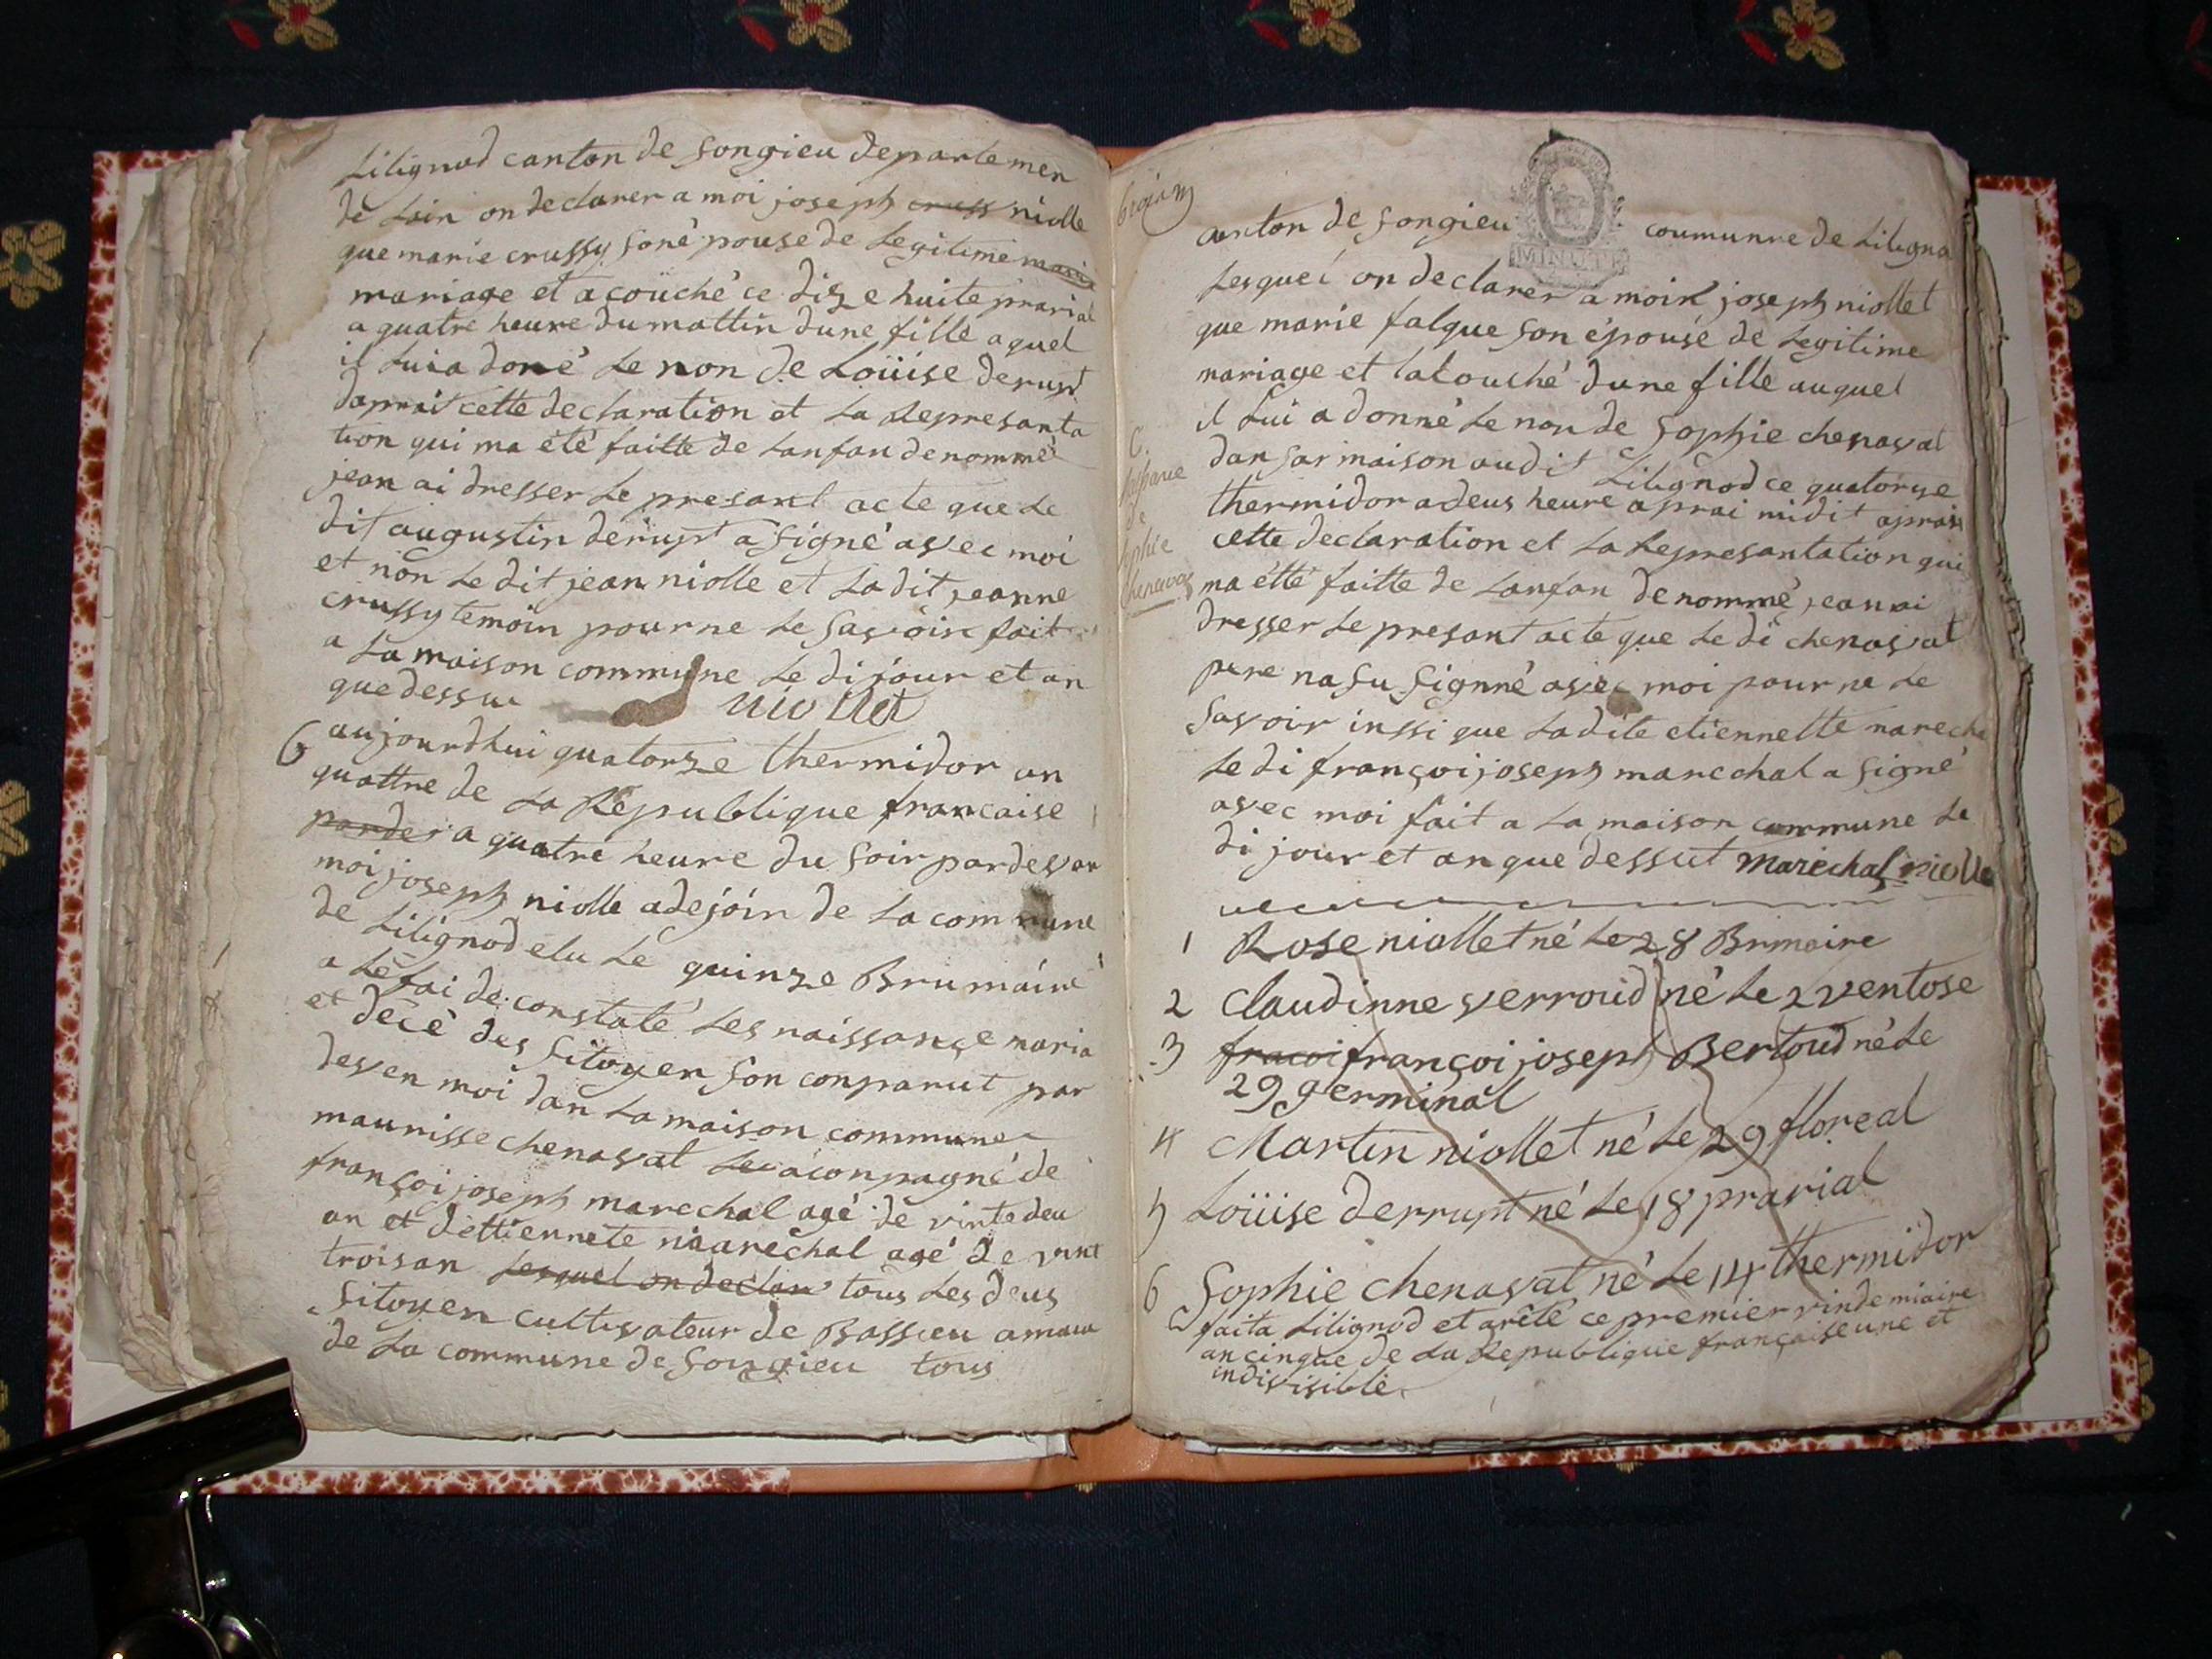 Lilignod canton de songieu departemen
de Lain on declarer a moi joseph cruss niolle
que marie crussy soné pouse de Legitime mari
mariage et acoúché ce dize huite prarial
a quatre heure du mattin dune fille aquel
il luia doné Le non de Loüise derupt
daprait cette declaration et La Represanta
tion qui ma été faitte de Lanfan denommé
jean ai dresser Le presant acte que Le
dit augustin derupt a signé avec moi
et non Le dit jean niolle et La dit jeanne
crussy temoin pour ne Le savoir fait
a La maison commune Le di jour et an
que dessu niollet
6 aujourdhui quatorze thermidor an
quattre de La Republique francaise
pardev a quatre heure du soir pardevan
moi joseph niolle adejoin de La commune
de Lilignod elu Le quinze Brumaire
a Léfai de constaté Les naissance maria
et décé des sitoyen son conparut par
deven moi dan La maison commune
maurisse chenavat Lec aconpagné de
françoi joseph marechal agé de vinte deu
an et dettiennete maréchal agé de vint
trois an Lesquel on declar tous Les deus
sitoyen cultivateur de Bassieu amau
de La commune de Songieu tous
6
canton de songieu coumunne de Liligna
MINUTE
Lesquel on declarer a moi joseph niollet
que marie falque son épouse de Legitime
mariage et lacouché dune fille auquel
il Lui a donné Le non de Sophie chenavat
dan sar maison audit Lilignod ce quatorze
thermidor a deus heure aprai midit aprais
cette declaration et La Represantation qui
ma étté faitte de Lanfan denommé jean ai
dresser Le presant acte que Le di chenavat
pere na su signné avec moi pour ne Le
savoir inssi que Ladite etiennette marecha
Le di françoi joseph marechal a signé
avec moi fait a La maison commune Le
di jour et an que dessut maréchal niolle
naissance
de
sophie
chenavaz
1 Rose niollet né Le 28 Brimaire
2 Claudinne verroud né Le 2 ventose
3 fracoi françoi joseph Bertoud né Le
29 germinal
4 Martin niollet né Le 29 floreal
5 Loüise derrupt né Le 18 prarial
6 Sophie chenavat né Le 14 thermidor
fait a Lilignod et arêté ce premier vindemiaire
an cinque de La Republique française une et
indivisible